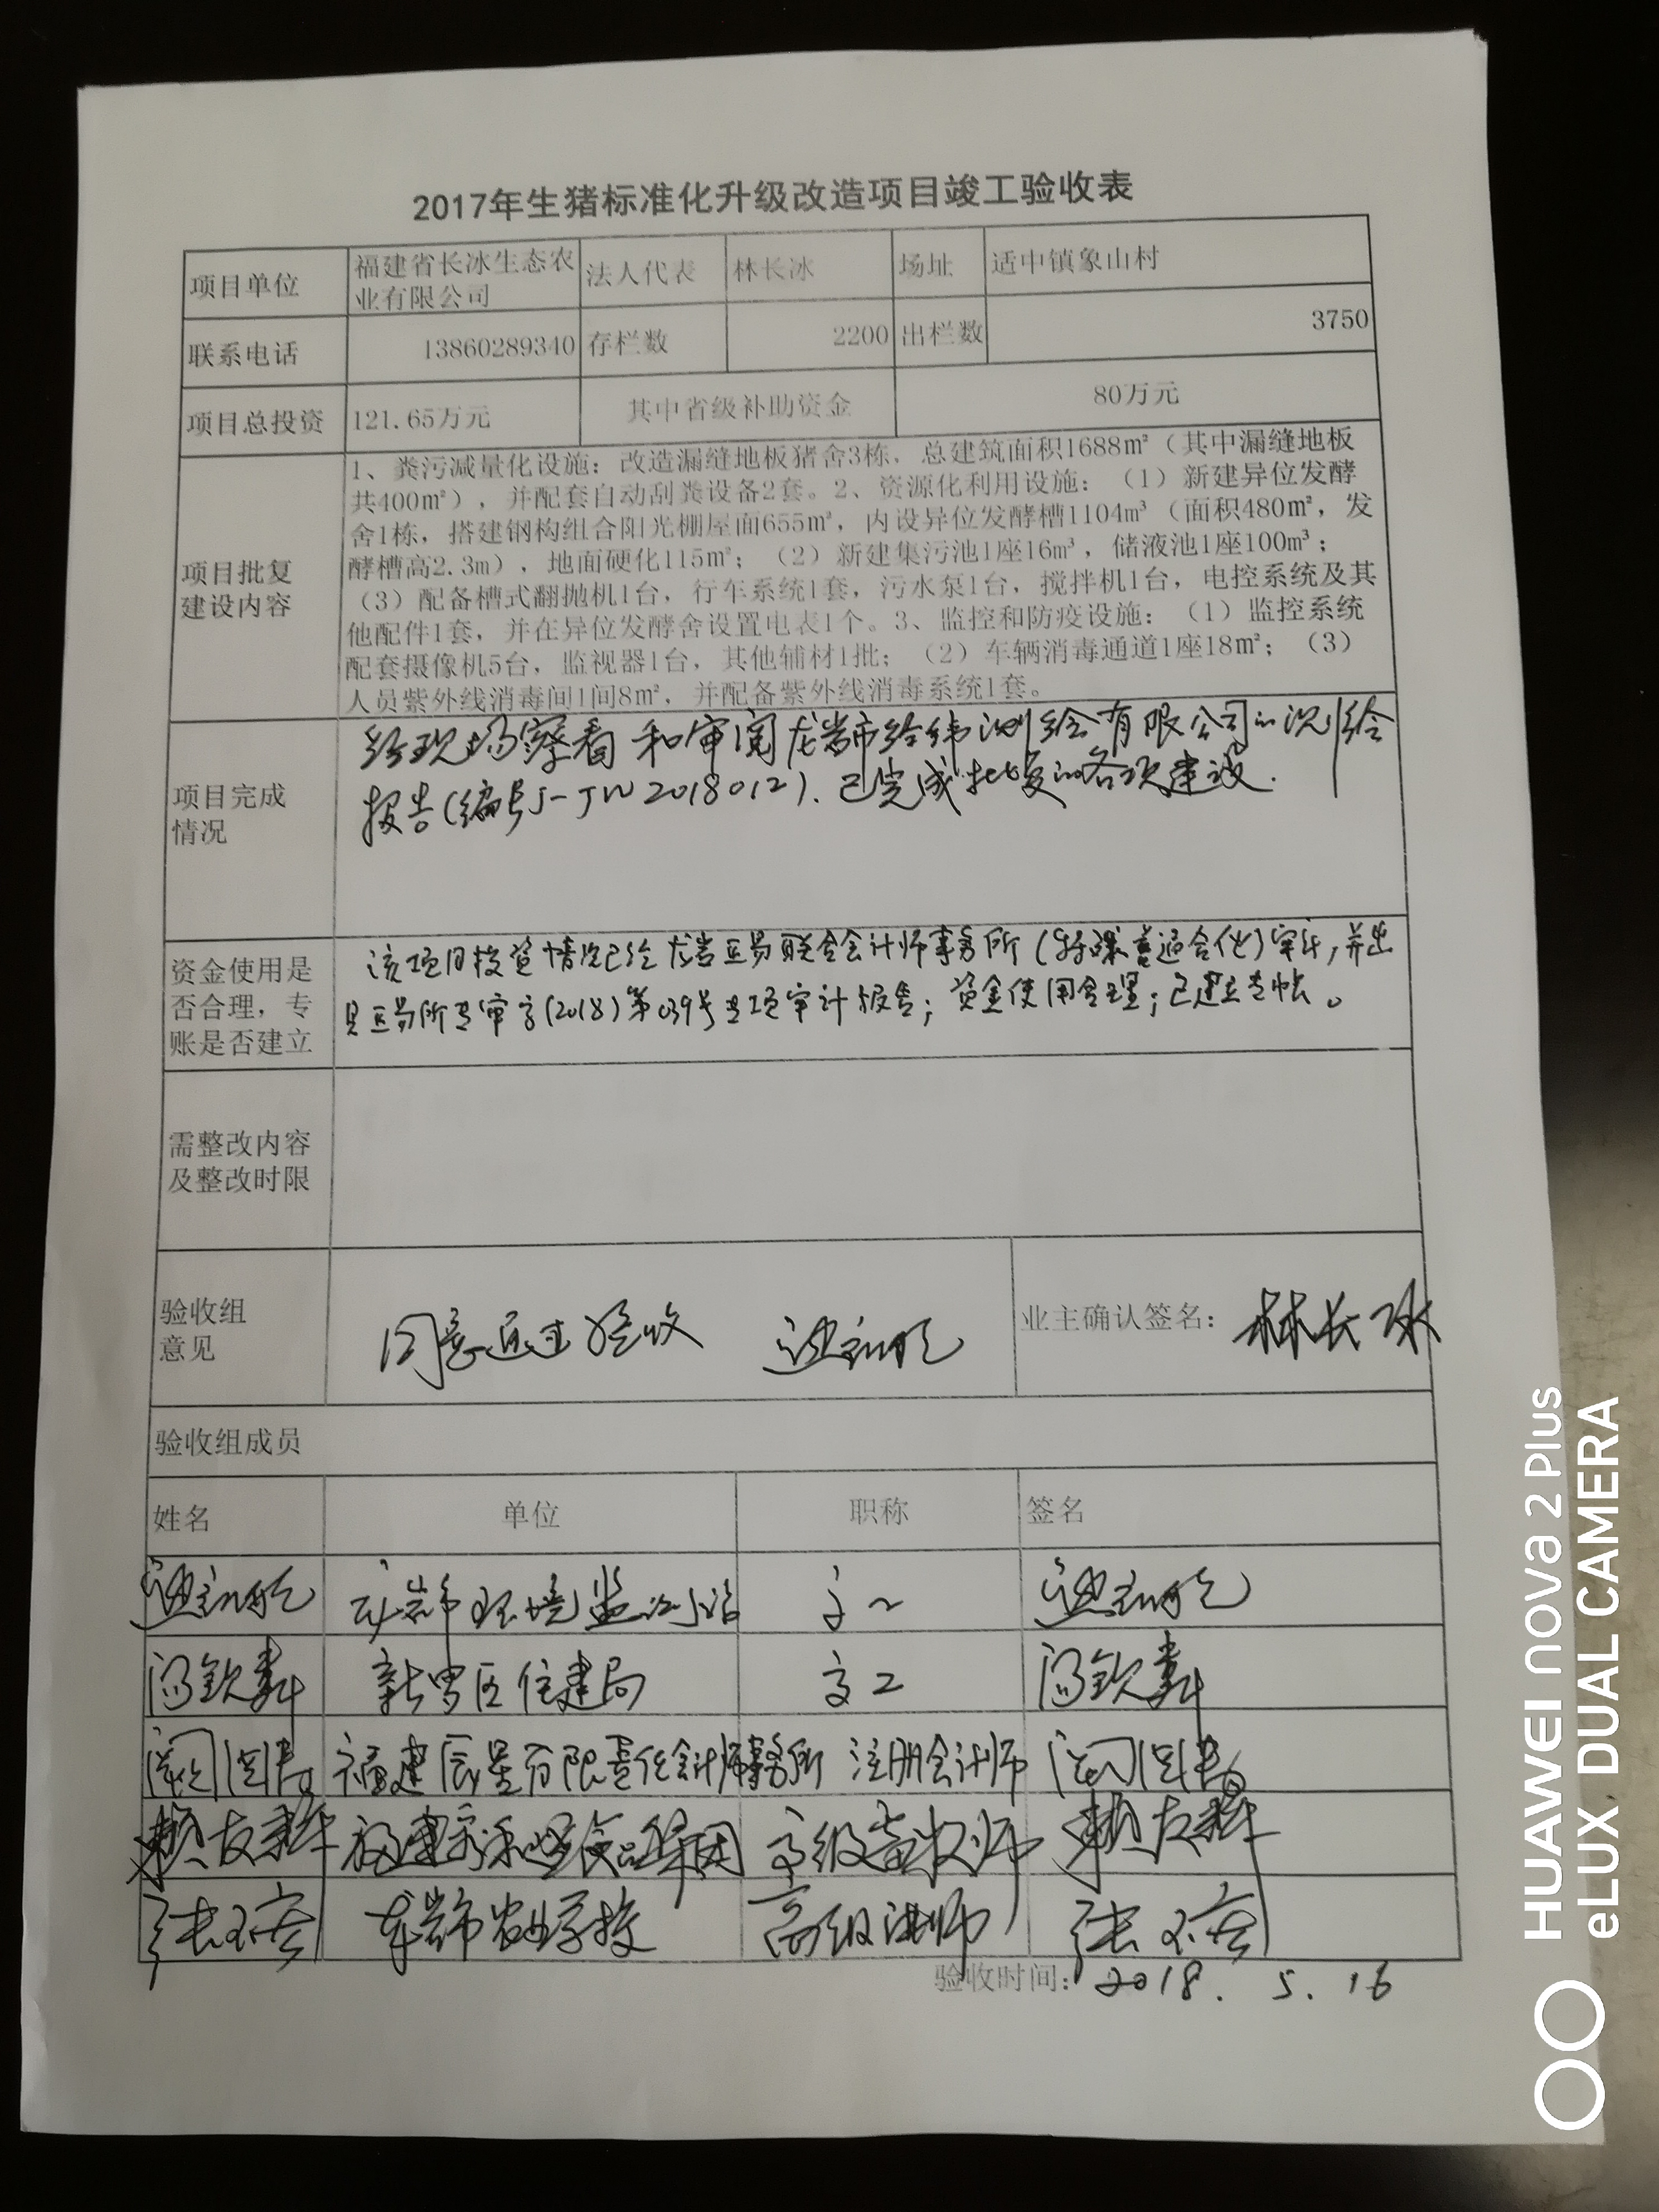 2017年生猪标准化升级改造项目竣工验收表
项目单位 福建省长冰生态农业有限公司 法人代表 林长冰 场址 适中镇象山村
联系电话 13860289340 存栏数 2200 出栏数 3750
项目总投资 121.65万元 其中省级补助资金 80万元
项目批复建设内容
1、粪污减量化设施：改造漏缝地板猪舍3栋，总建筑面积1688㎡（其中漏缝地板
共400㎡），并配套自动刮粪设备2套。2、资源化利用设施：（1）新建异位发酵
舍1栋，搭建钢构组合阳光棚屋面655㎡，内设异位发酵槽1104m³（面积480㎡，发
酵槽高2.3m），地面硬化115㎡；（2）新建集污池1座16m³，储液池1座100m³；
（3）配备槽式翻抛机1台，行车系统1套，污水泵1台，搅拌机1台，电控系统及其
他配件1套，并在异位发酵舍设置电表1个。3、监控和防疫设施：（1）监控系统
配套摄像机5台，监视器1台，其他辅材1批；（2）车辆消毒通道1座18㎡；（3）
人员紫外线消毒间1间8㎡，并配备紫外线消毒系统1套。
项目完成情况
经现场察看和审阅龙岩市经纬测绘有限公司的测绘
报告(编号J-JW2018012).已完成批复的各项建设.
资金使用是否合理，专账是否建立
该项目投资情况已经龙岩正易联合会计师事务所(特殊普通合伙)审计,并出
具正易所专审字(2018)第039号专项审计报告；资金使用合理；已建立专帐。
需整改内容及整改时限
验收组意见 同意通过验收 业主确认签名：林长冰
验收组成员
姓名 单位 职称 签名
龙岩市环境监测站 高工
新罗区住建局 高工
福建辰星有限责任会计师事务所 注册会计师
赖友辉 福建 食品集团 高级畜牧师 赖友辉
张 龙岩市农业学校 高级讲师 张
验收时间：2018.5.16
HUAWEI nova 2 Plus
eLUX DUAL CAMERA